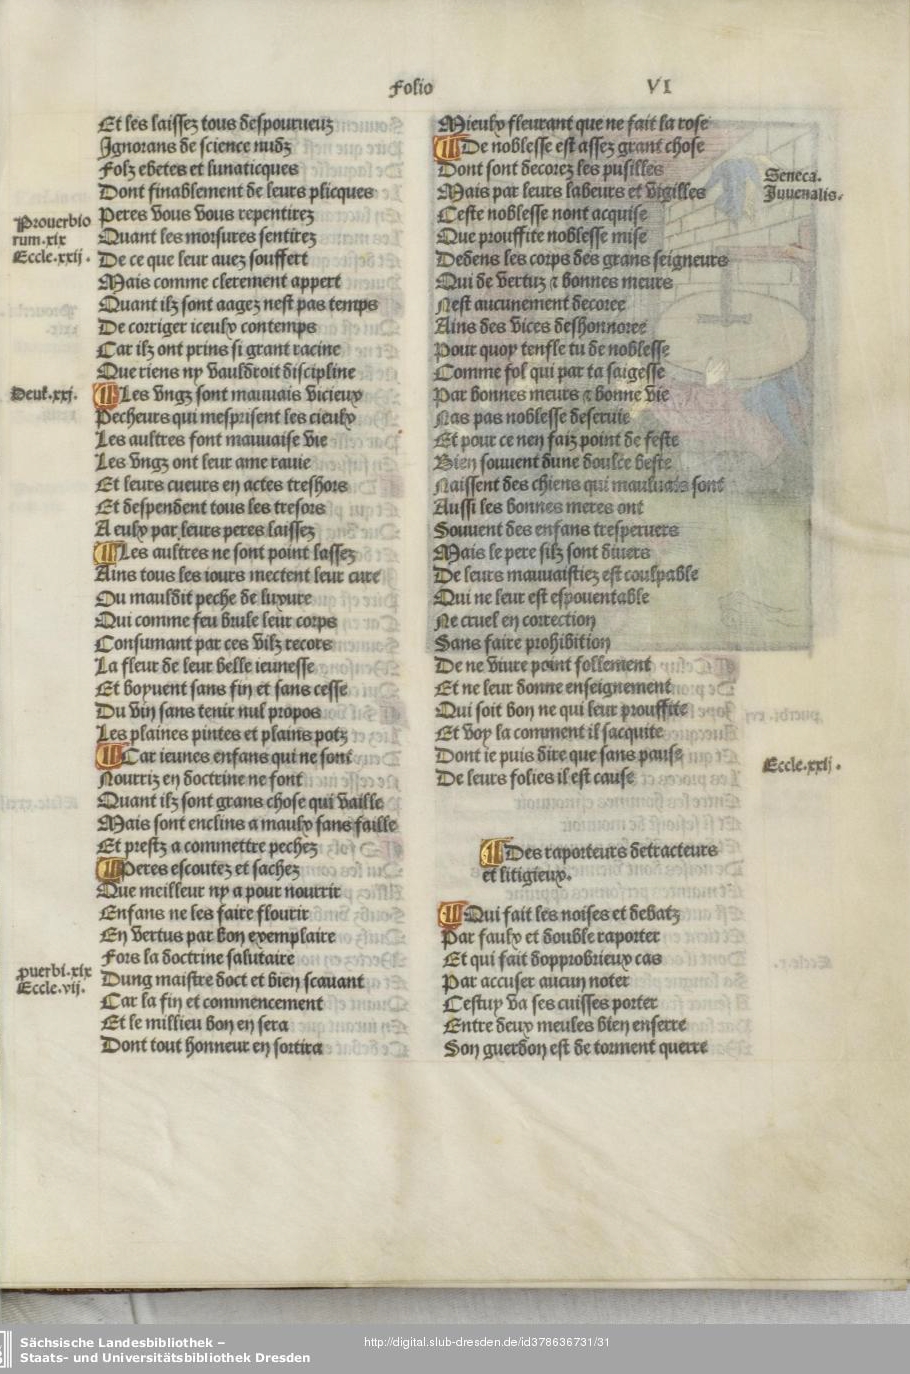 Folio VI
Et les laissez tous despourueuz
Ignorans de science nudz
Folz ebetes et lunaticques
Dont finablement de leurs plicques
Peres vous vous repentirez
Quant les morsures sentirez
De ce que leur auez souffert
Mais comme clerement appert
Quant ilz sont aagez nest pas temps
De corriger iceulx contemps
Car ilz ont prins si grant racine
Que riens ny vauldroit discipline
Les vngz sont mauuais vicieux
Pecheurs qui mesprisent les cieulx
Les aultres font mauuaise vie
Les vngz ont leur ame rauie
Et leurs cueurs en actes treshors
Et despendent tous les tresors
A eulx par leurs peres laissez
Les aultres ne sont point lassez
Ains tous les iours mectent leur cure
Ou mauldit peche de luxure
Qui comme feu brule leur corps
Consumant par ces vilz recors
La fleur de leur belle ieunesse
Et boyuent sans fin et sans cesse
Du vin sans tenir nul propos
Les plaines pintes et plains potz
Car ieunes enfans qui ne sont
Nourriz en doctrine ne font
Quant ilz sont grans chose qui vaille
Mais sont enclins a maulx sans faille
Et prestz a commettre pechez
Peres escoutez et sachez
Que meilleur ny a pour nourrir
Enfans ne les faire flourir
En vertus par bon exemplaire
Fors la doctrine salutaire
Dung maistre doct et bien scauant
Car la fin et commencement
Et le millieu bon en sera
Dont tout honneur en sortira
Prouerbio
rum.xix
Eccle.xxij.
Deut.xxj.
prouerbi.xix
Eccle.vij.
Mieulx fleurant que ne fait la rose
De noblesse est assez grant chose
Dont sont decorez les pusilles
Mais par leurs labeurs et vigilles
Ceste noblesse nont acquise
Que prouffite noblesse mise
Dedens les corps des grans seigneurs
Qui de vertuz ⁊ bonnes meurs
Nest aucunement decoree
Ains des vices deshonnoree
Pour quoy tenfle tu de noblesse
Comme fol qui par ta saigesse
Par bonnes meurs ⁊ bonne vie
Nas pas noblesse deseruie
Et pour ce nen faiz point de feste
Bien souuent dune doulce beste
Naissent des chiens qui mauluais sont
Aussi les bonnes meres ont
Souuent des enfans tresperuers
Mais le pere silz sont diuers
De leurs mauuaistiez est coulpable
Qui ne leur est espouentable
Ne cruel en correction
Sans faire prohibition
De ne viure point follement
Et ne leur donne enseignement
Qui soit bon ne qui leur prouffite
Et voy la comment il sacquite
Dont ie puis dire que sans pause
De leurs folies il est cause
Des raporteurs detracteurs
et litigieux.
Qui fait les noises et debatz
Par faulx et double raporter
Et qui fait dopprobrieux cas
Par accuser aucun noter
Cestuy va ses cuisses porter
Entre deux meules bien enserre
Son guerdon est de torment querre
Seneca.
Juuenalis.
Eccle.xxij.
Sächsische Landesbibliothek –
Staats- und Universitätsbibliothek Dresden
http://digital.slub-dresden.de/id378636731/31